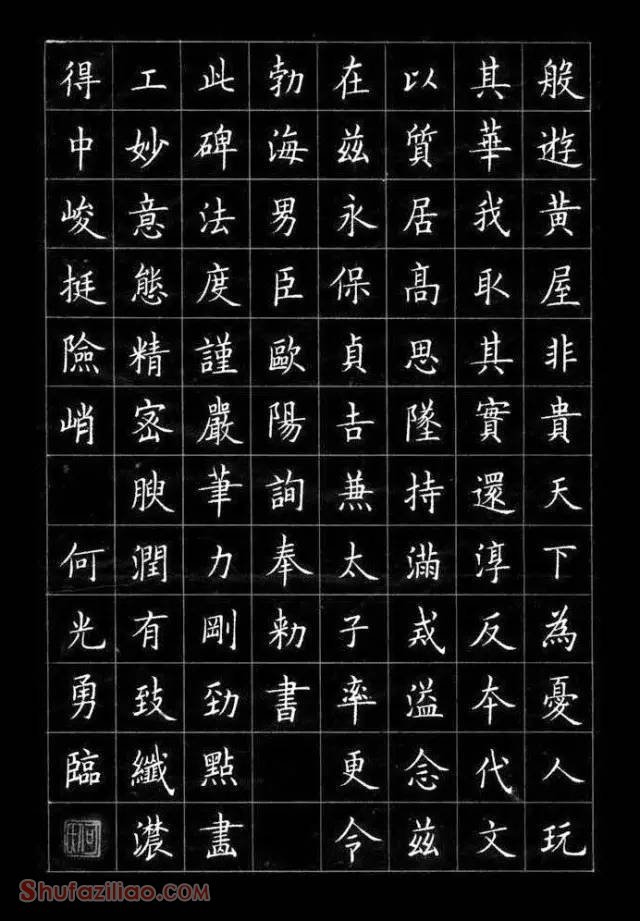 般遊黃屋非貴天下為憂人玩
其華我取其實還淳反本代文
以質居高思墜持滿戒溢念茲
在茲永保貞吉兼太子率更令
勃海男臣歐陽詢奉勅書
此碑法度謹嚴筆力剛勁點畫
工妙意態精密腴潤有致纖濃
得中峻挺險峭 何光勇臨
Shufaziliao.COM